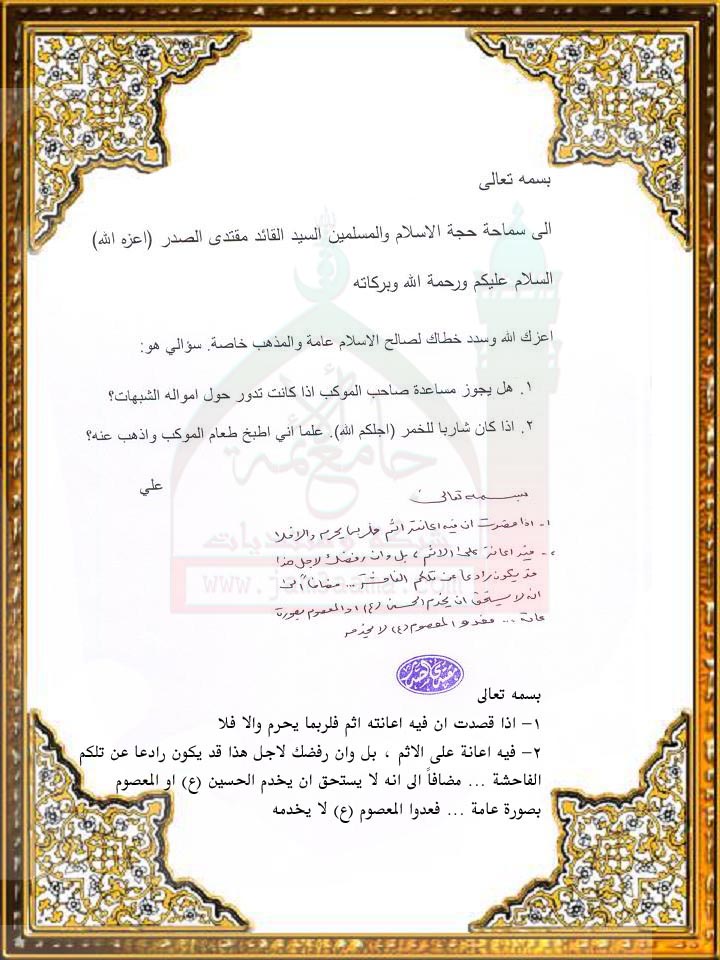 بسمه تعالى
الى سماحة حجة الاسلام والمسلمين السيد القائد مقتدى الصدر (اعزه الله)
السلام عليكم ورحمة الله وبركاته
اعزك الله وسدد خطاك لصالح الاسلام عامة والمذهب خاصة. سؤالي هو:
١. هل يجوز مساعدة صاحب الموكب اذا كانت تدور حول امواله الشبهات؟
٢. اذا كان شاربا للخمر (اجلكم الله). علما اني اطبخ طعام الموكب واذهب عنه؟
علي
بسمه تعالى
١- اذا قصدت ان فيه اعانته اثم فلربما يحرم والا فلا
٢- فيه اعانة على الاثم ، بل وان رفضك لاجل هذا
قد يكون رادعا عن تلكم الفاحشة ... مضافاً الى
انه لا يستحق ان يخدم الحسين (ع) او المعصوم بصورة
عامة ... فعدو المعصوم (ع) لا يخدمه
جامع الأئمة
شبكة ومنتديات
www.jam3aama.com
مقتدى الصدر
بسمه تعالى
١- اذا قصدت ان فيه اعانته اثم فلربما يحرم والا فلا
٢- فيه اعانة على الاثم ، بل وان رفضك لاجل هذا قد يكون رادعا عن تلكم
الفاحشة ... مضافاً الى انه لا يستحق ان يخدم الحسين (ع) او المعصوم
بصورة عامة ... فعدوا المعصوم (ع) لا يخدمه